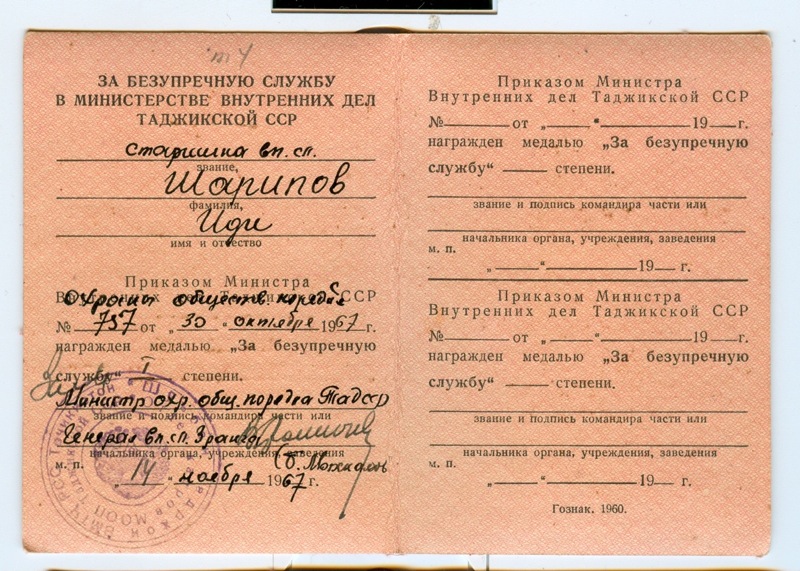 ЗА БЕЗУПРЕЧНУЮ СЛУЖБУ
В МИНИСТЕРСТВЕ ВНУТРЕННИХ ДЕЛ
ТАДЖИКСКОЙ ССР
старшина вн. сл.
звание,
Шарипов
фамилия,
Иди
имя и отчество
Приказом Министра
Внутренних дел Таджикской ССР
Охраны обществ. порядка
№ 737 от „30 октября 1967 г.
награжден медалью „За безупречную
службу“ I степени.
Министр охр. общ. порядка Тадсср
звание и подпись командира части или
Генерал вн. сл. 3 ранга
начальника органа, учреждения, заведения
м. п. „14 ноября 1967 г.
Приказом Министра
Внутренних дел Таджикской ССР
№ от „ “ 19 г.
награжден медалью „За безупречную
службу“ степени.
звание и подпись командира части или
начальника органа, учреждения, заведения
м. п.
„ “ 19 г.
Приказом Министра
Внутренних дел Таджикской ССР
№ от „ “ 19 г.
награжден медалью „За безупречную
службу“ степени.
звание и подпись командира части или
начальника органа, учреждения, заведения
м. п.
„ “ 19 г.
Гознак. 1960.